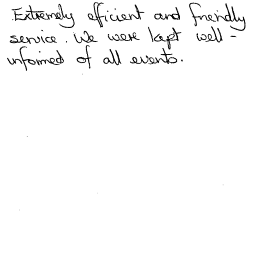 Extremely efficient and friendly
service. We were kept well-
informed of all events.